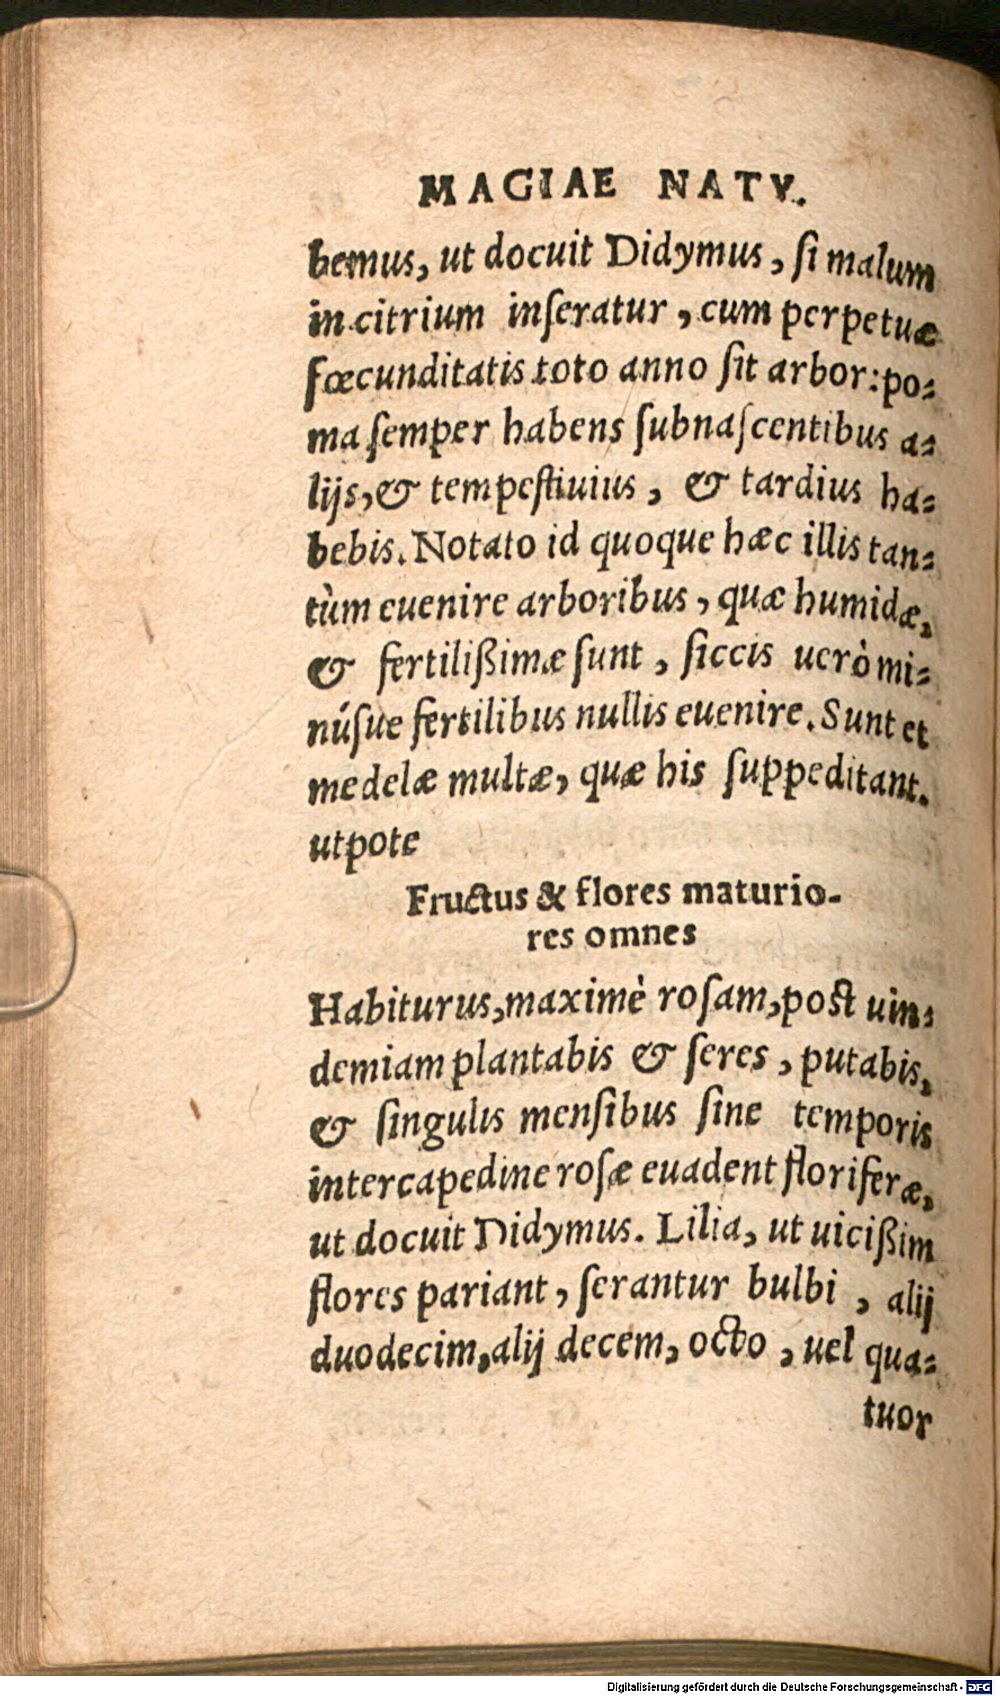 MAGIAE NATV.
bemus, ut docuit Didymus, ſi malum
in citrium inſeratur, cum perpetuæ
fœcunditatis toto anno ſit arbor: po-
ma ſemper habens ſubnaſcentibus a-
lijs, & tempeſtiuius, & tardius ha-
bebis. Notato id quoque hæc illis tan-
tùm euenire arboribus, quæ humidæ,
& fertilißimæ sunt, ſiccis uerò mi-
núſue fertilibus nullis euenire. Sunt et
medelæ multæ, quæ his ſuppeditant.
utpote
Fructus & flores maturio-
res omnes
Habiturus, maximè roſam, poſt uin-
demiam plantabis & ſeres, putabis,
& ſingulis menſibus ſine temporis
intercapedine roſæ euadent floriferæ,
ut docuit Didymus. Lilia, ut uicißim
flores pariant, ſerantur bulbi, alij
duodecim, alij decem, octo, uel qua-
tuor
Digitalisierung gefördert durch die Deutsche Forschungsgemeinschaft - DFG